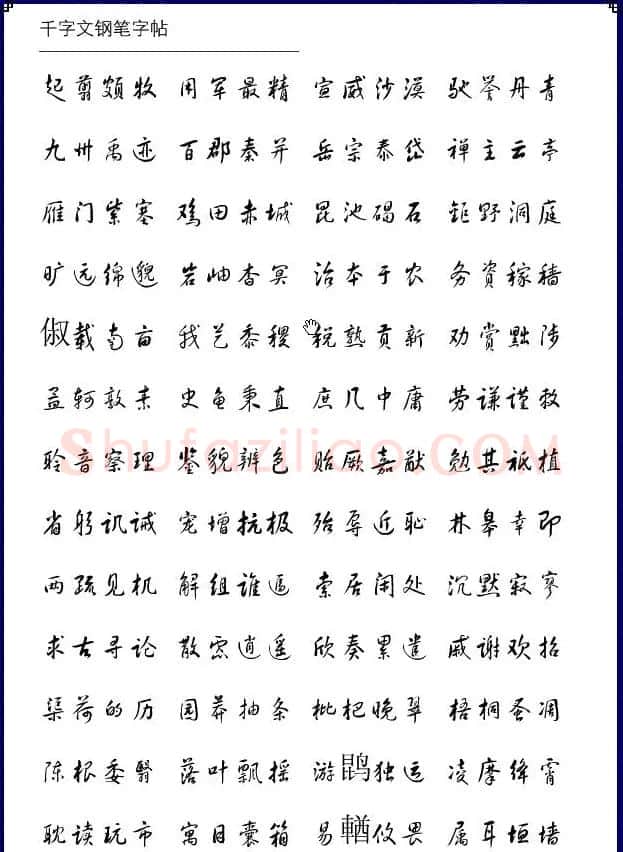 千字文钢笔字帖
起剪颇牧 用军最精 宣威沙漠 驰誉丹青
九州禹迹 百郡秦并 岳宗泰岱 禅主云亭
雁门紫塞 鸡田赤城 昆池碣石 钜野洞庭
旷远绵邈 岩岫杳冥 治本于农 务资稼穑
俶载南亩 我艺黍稷 税熟贡新 劝赏黜陟
孟轲敦素 史鱼秉直 庶几中庸 劳谦谨敕
聆音察理 鉴貌辨色 贻厥嘉猷 勉其祗植
省躬讥诫 宠增抗极 殆辱近耻 林皋幸即
两疏见机 解组谁逼 索居闲处 沉默寂寥
求古寻论 散虑逍遥 欣奏累遣 戚谢欢招
渠荷的历 园莽抽条 枇杷晚翠 梧桐蚤凋
陈根委翳 落叶飘摇 游鹍独运 凌摩绛霄
耽读玩市 寓目囊箱 易輶攸畏 属耳垣墙
Shufaziliao.COM